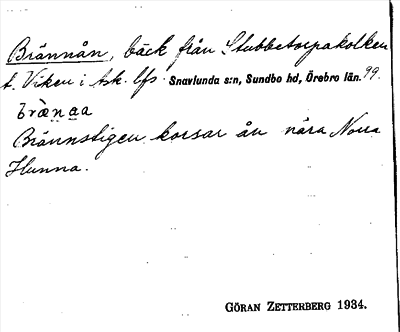 Brännån, bäck från Stubbetorpakolken
t. Viken i Ask. lfs. Snavlunda s:n, Sundbo hd, Örebro län. 99.
brä̀naa
Brännstigen korsar ån nära Norra
Hunna.
GÖRAN ZETTERBERG 1934.